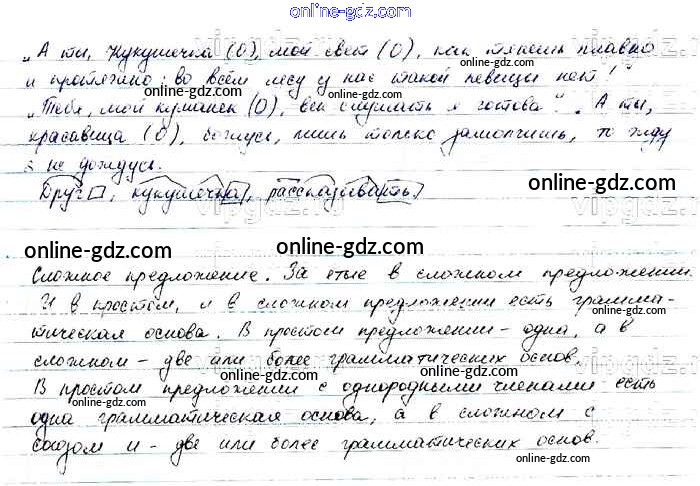 online-gdz.com
„А ты, Кукушечка (О), мой свет (О), как тянешь плавно
и протяжно: во всём лесу у нас такой певицы нет!“
„Тебя, мой куманек (О), век слушать я готова“. „А ты,
красавица (О), божусь, лишь только замолчишь, то жду
я не дождусь.
online-gdz.com
Друг, кукушечка, рассказывать.
online-gdz.com
online-gdz.com online-gdz.com
Сложное предложение. Запятые в сложном предложении.
И в простом, и в сложном предложении есть грамма-
online-gdz.com
тическая основа. В простом предложении – одна, а в
сложном – две или более грамматических основ.
online-gdz.com
В простом предложении с однородными членами – есть
online-gdz.com
одна грамматическая основа, а в сложном с
союзом и – две или более грамматических основ.
online-gdz.com
online-gdz.com